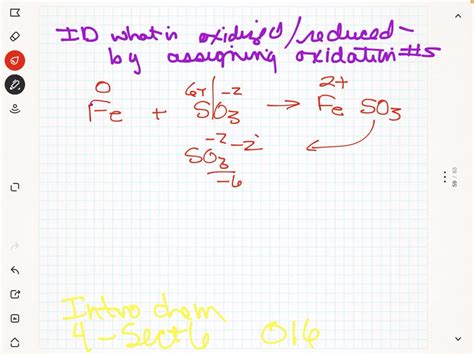 ID what is oxidized/reduced
by assigning oxidation #s
0 6+ -2 2+
Fe + SO3 → Fe SO3
-2 -2
SO3
-6
Intro chem
4-Sect 6 016
59 / 93